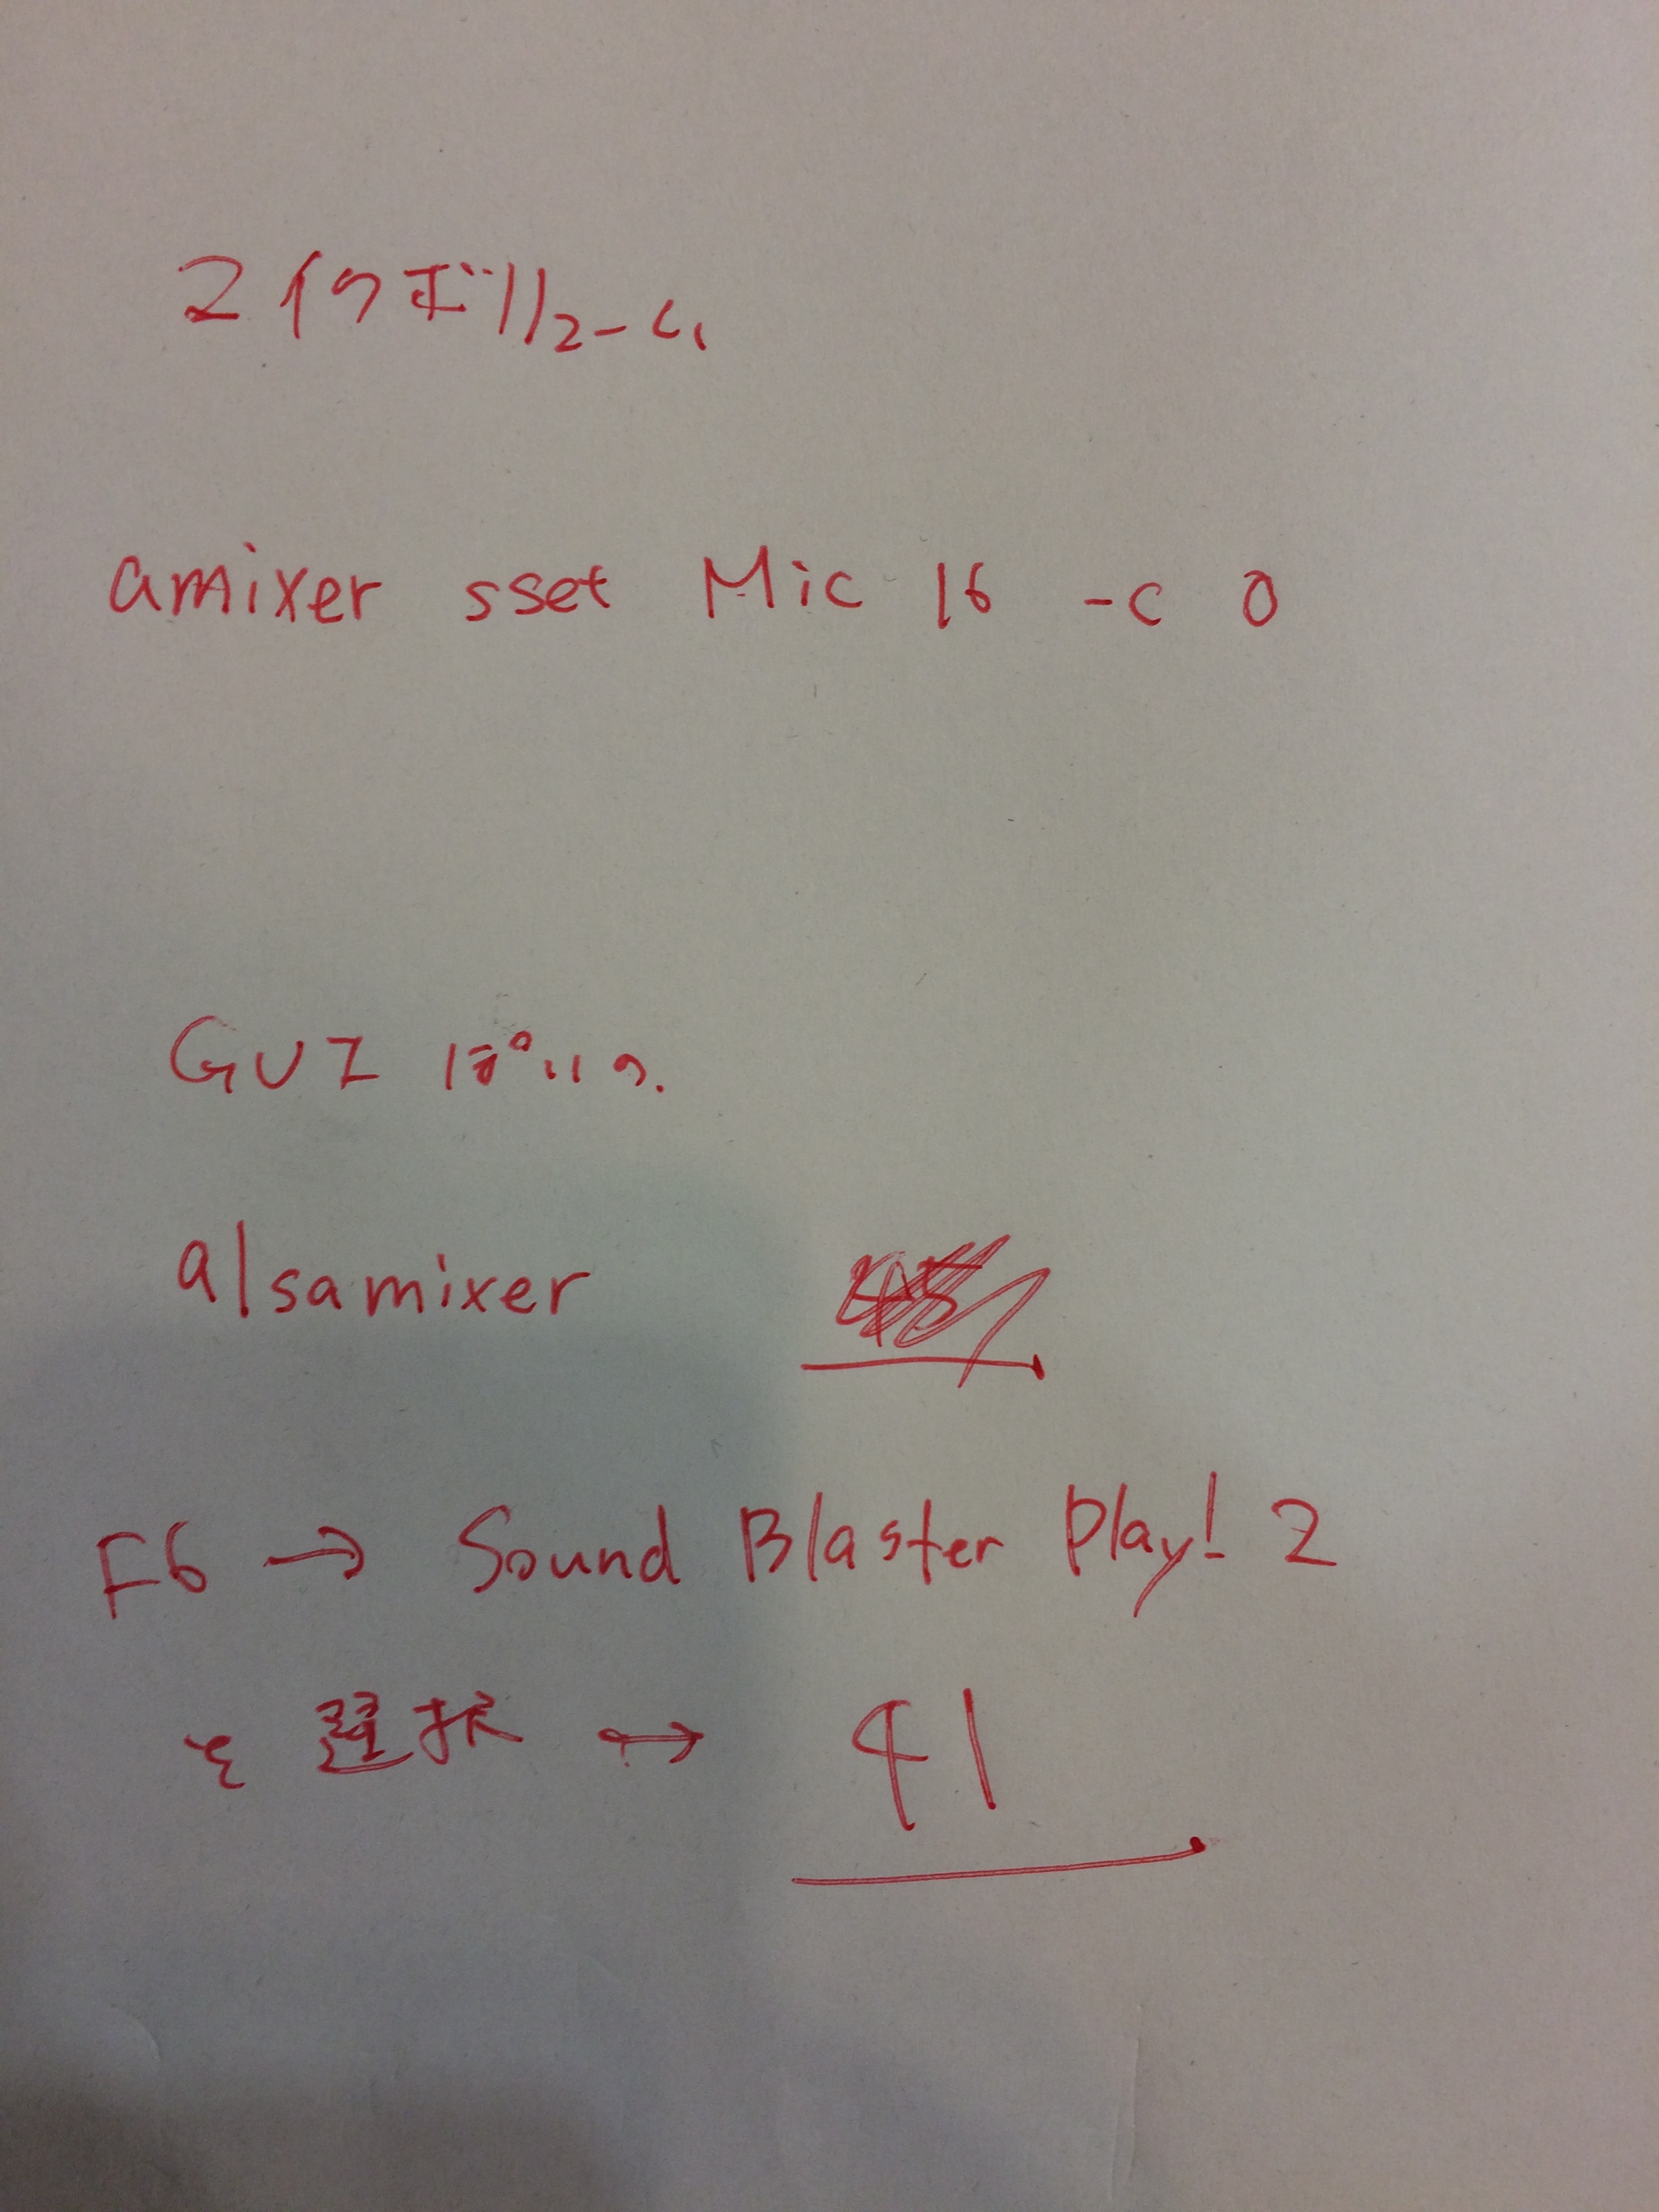 マイクボリューム
amixer sset Mic 16 -c 0
GUI ぽいの.
alsamixer
F6 → Sound Blaster Play! 2
を選択 → 41